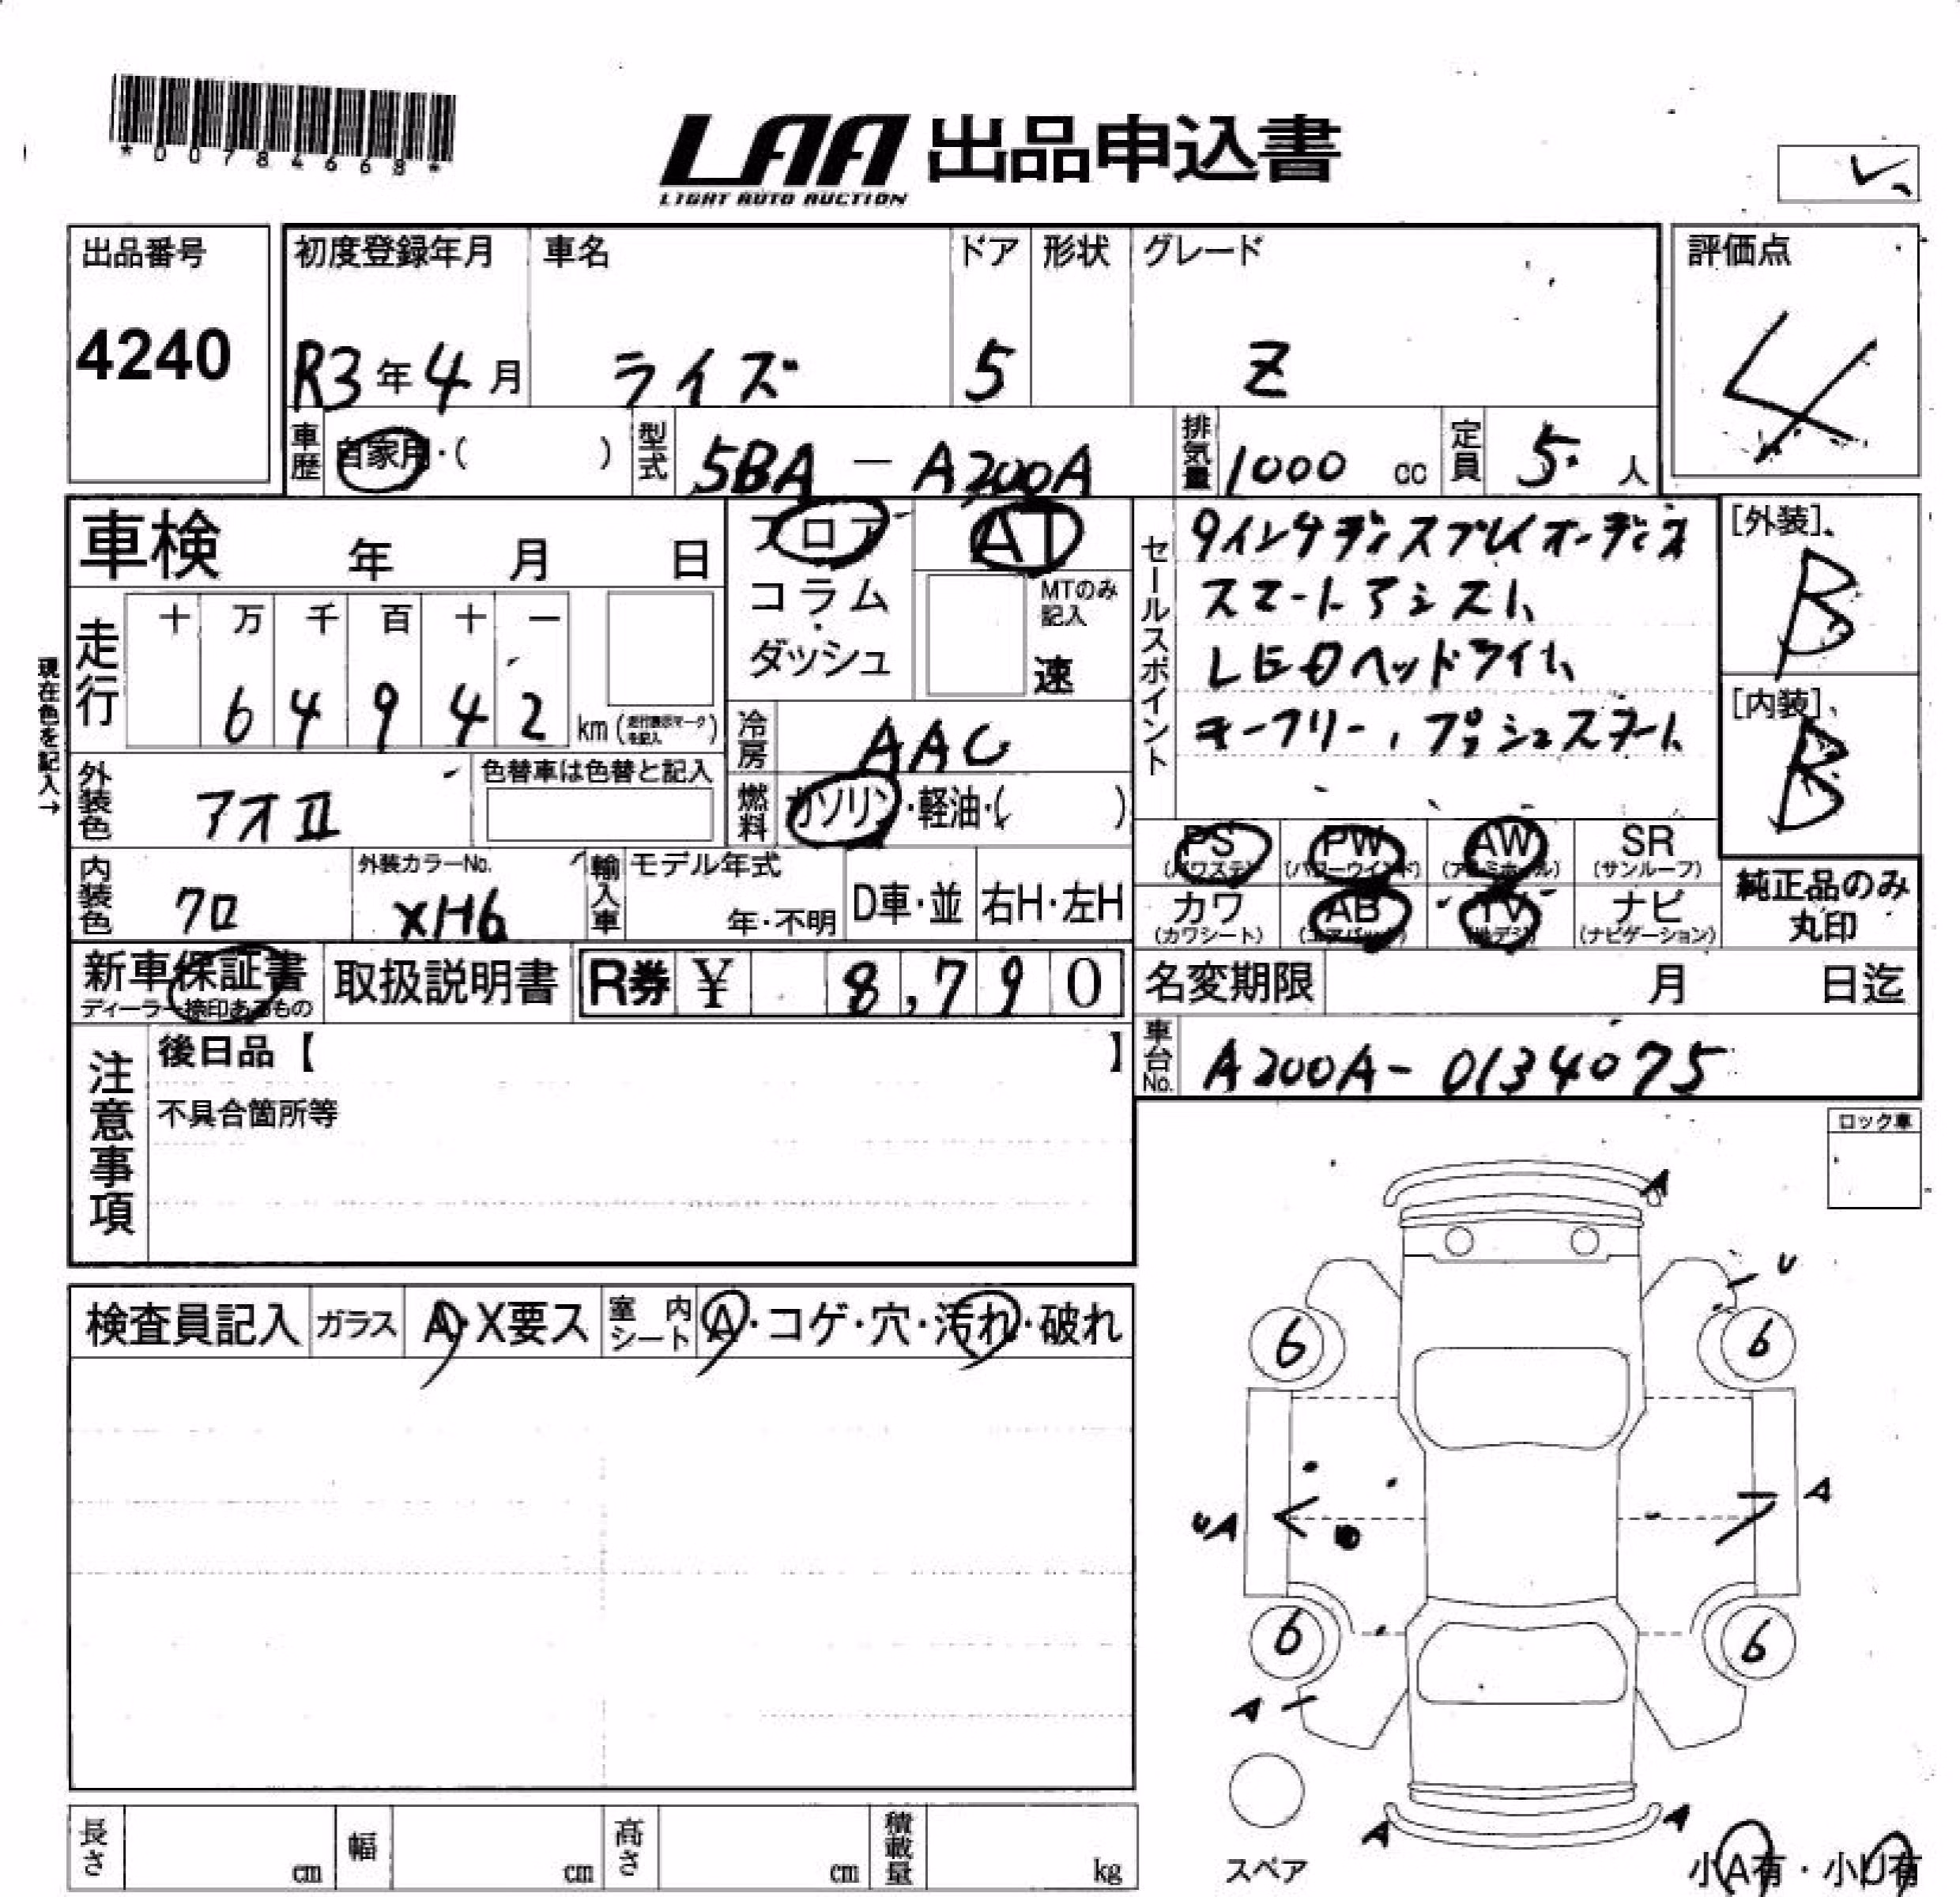 *00784668*
LAA 出品申込書
LIGHT AUTO AUCTION
出品番号 初度登録年月 車名 ドア 形状 グレード 評価点
4240 R3年4月 ライズ 5 Z 4
車歴 自家用・( ) 型式 5BA-A200A 排気量 1000 cc 定員 5 人
車検 年 月 日 フロア AT セールスポイント 9インチディスプレイオーディオ [外装] B
コラム MTのみ記入 スマートアシスト
ダッシュ 速 LEDヘッドライト
キーフリー、プッシュスタート [内装] B
現在色を記入→
走行 十 万 千 百 十 一
6 4 9 4 2 km (走行表示マークを記入)
冷房 AAC
外装色 アオII 色替車は色替と記入 燃料 ガソリン・軽油・( )
PS (パワステ) PW (パワーウインド) AW (アルミホイル) SR (サンルーフ)
内装色 クロ 外装カラーNo. XH6 輸入車 モデル年式 年・不明 D車・並 右H・左H
カワ (カワシート) AB (エアバック) TV (地デジ) ナビ (ナビゲーション) 純正品のみ丸印
新車保証書 ディーラー捺印あるもの 取扱説明書 R券 ¥ 8,790 名変期限 月 日迄
車台No. A200A-0134075
注意事項 後日品【 】
不具合箇所等
ロック車
A
U
検査員記入 ガラス A・X要ス 室内シート A・コゲ・穴・汚れ・破れ
6 6
A
UA
6 6
A
A A
スペア 小A有・小U有
長さ cm 幅 cm 高さ cm 積載量 kg